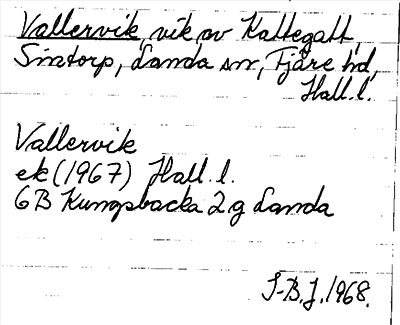 Vallervik, vik av Kattegatt,
Sintorp, Landa sn, Fjäre hd,
Hall. l.
Vallervik
ek (1967) Hall. l.
6B Kungsbacka 2 g Landa
S-B. J. 1968.